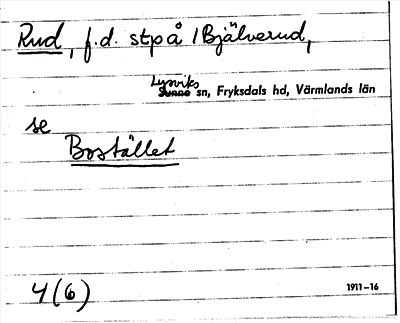 Rud, f.d. stp å 1 Bjälverud,
Lysviks
Sunne sn, Fryksdals hd, Värmlands län
se
Bostället
4(6)
1911–16